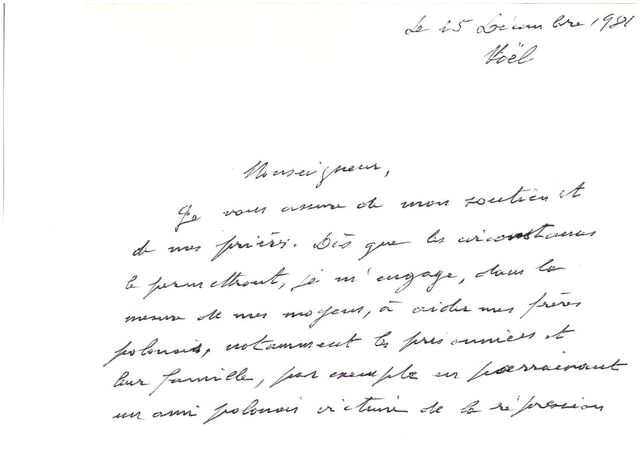 Le 25 Décembre 1981
Noël
Monseigneur,
Je vous assure de mon soutien et
de mes prières. Dès que les circonstances
le permettront, je m'engage, dans la
mesure de mes moyens, à aider mes frères
polonais, notamment les prisonniers et
leur famille, par exemple en parrainant
un ami polonais victime de la répression